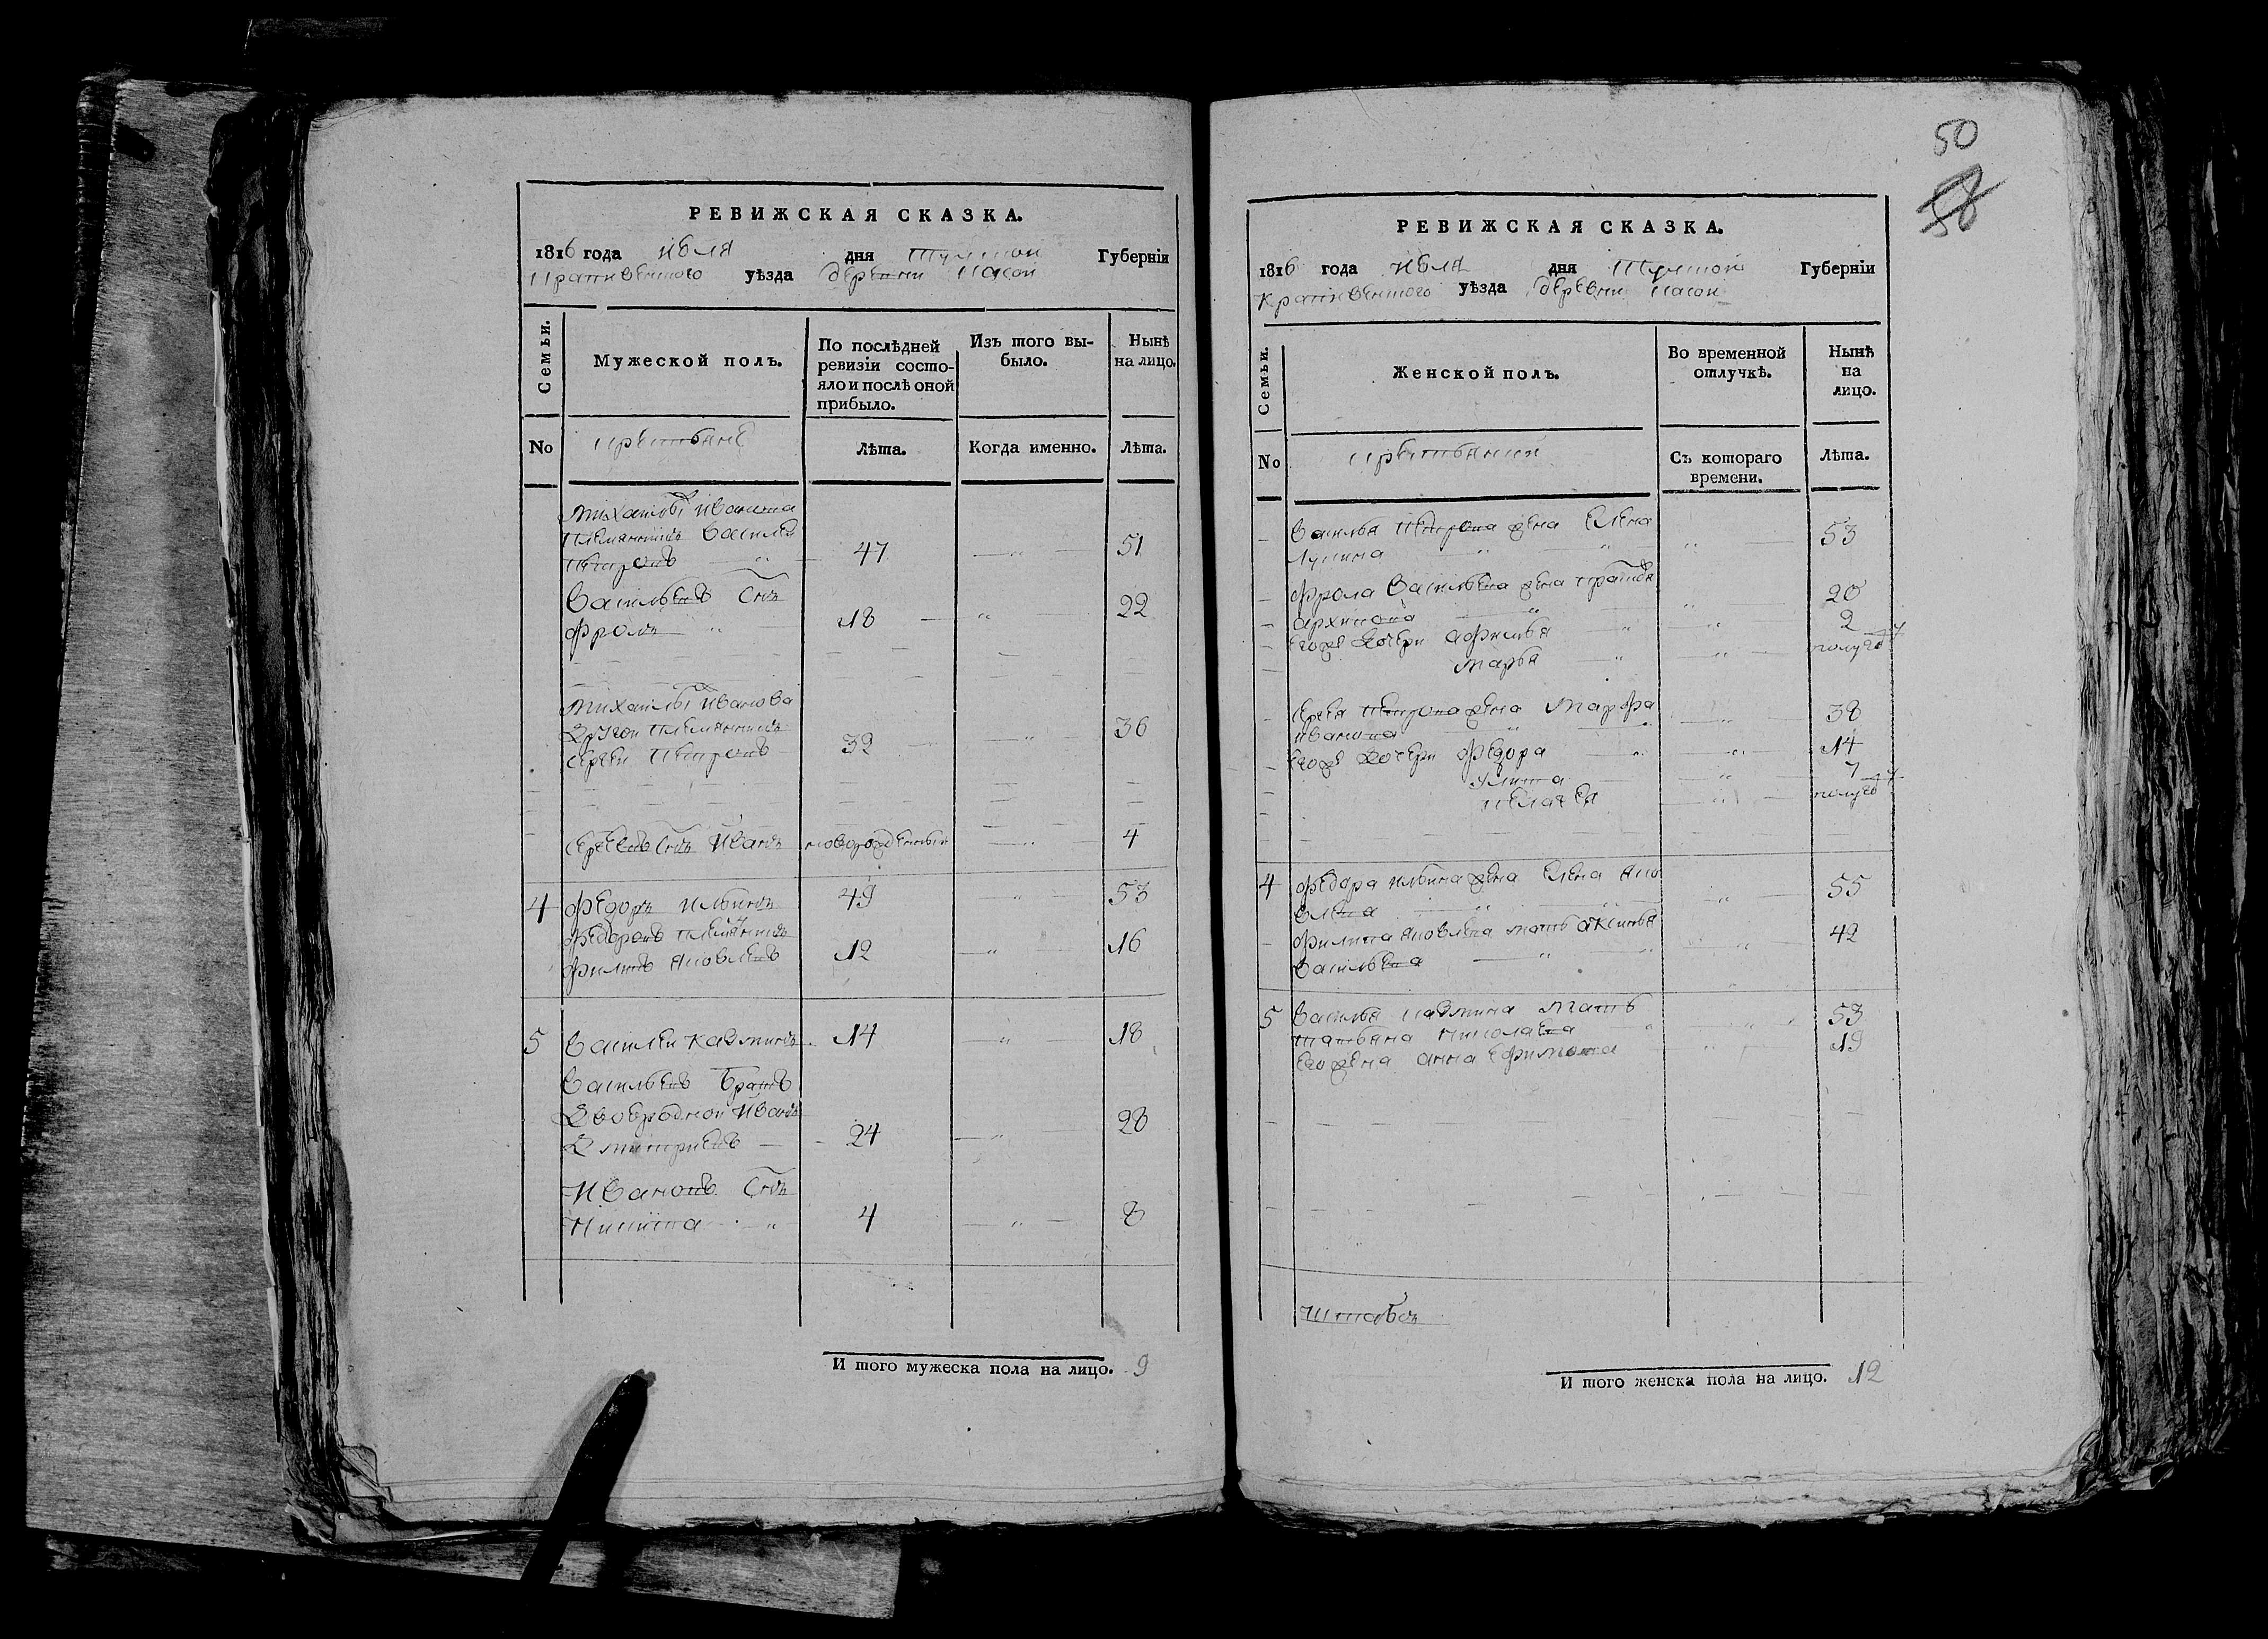 РЕВИЖСКАЯ СКАЗКА.
1816 года Июля дня Тулской Губерніи
Крапивенского уѣзда деревни
Семьи.
Мужеской полъ.
По послѣдней ревизіи состо-
яло и послѣ оной
прибыло.
Изъ того вы-
было.
Нынѣ
на лицо.
No
крестьяне
Лѣта.
Когда именно.
Лѣта.
Михайлы Иванова
племянникъ Василей
Петровъ 47 51
Васильевъ Снъ
Фролъ 18 22
Михайлы Иванова
Другой племянникъ
Сергей Петровъ 32 36
Сергеевъ Снъ Иванъ новорожденный 4
4 Федоръ Ильинъ 49 53
Федоровъ племянникъ
Филипъ Яковлевъ 12 16
5 Василей Казминъ 14 18
Васильевъ Братъ
Двоюродной Иванъ
Дмитриевъ 24 28
Ивановъ Снъ
Никита 4 8
И того мужеска пола на лицо. 9
50
58
РЕВИЖСКАЯ СКАЗКА.
1816 года Июля дня Тулской Губерніи
Крапивенского уѣзда деревни
Семьи.
Женской полъ.
Во временной
отлучкѣ.
Нынѣ
на
лицо.
No
крестьянки
Съ котораго
времени.
Лѣта.
Василья Петрова жена Елена 53
Лукина
Фрола Васильева жена 20
Архипова
Егоже Дочери Афимья 2
Марья полуго
Сергея Петрова жена Марфа 38
Иванова
Егоже Дочери Федора 14
Улита 7
Пелагея полуго
4 Федора Ильина жена Елена Яко 55
влева
Филипа Яковлева мать Аксинья 42
Васильева
5 Василья Казмина Мать 53
Татьяна Николаева
Егожена Анна Ефимова 19
Штабсъ
И того женска пола на лицо. 12